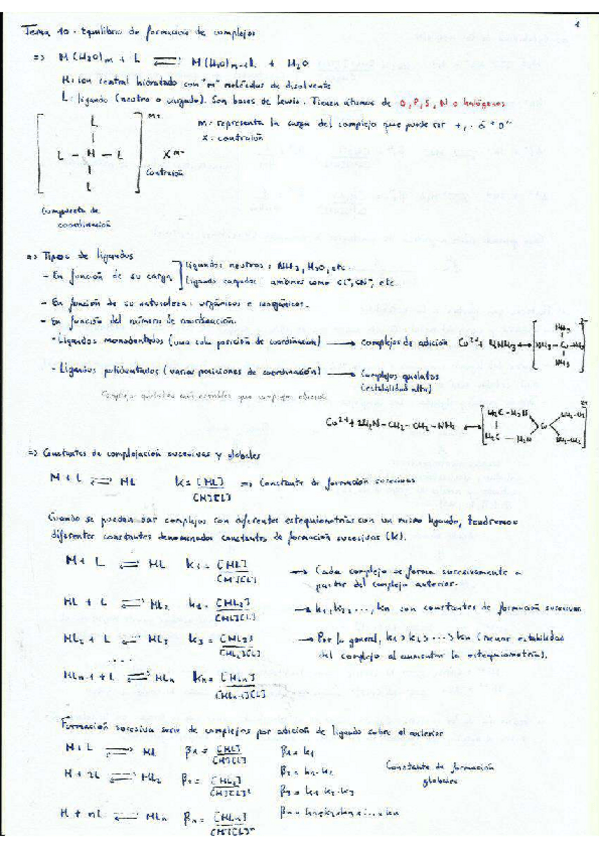 1
Tema 10. Equilibrio de formación de complejos
=> M(H2O)m + L ⇌ M(H2O)m-1L + H2O
M: ion central hidratado con "m" moléculas de disolvente
L: ligando (neutro o cargado). Son bases de Lewis. Tienen átomos de O, P, S, N o halógenos
m: representa la carga del complejo que puede ser +, - ó "0"
x: contraión
[ L L - M - L L ] m+ X m-
Contraión
Compuesto de
coordinación
=> Tipos de ligandos
- En función de su carga
Ligandos neutros: NH3, H2O, etc.
Ligandos cargados: aniones como Cl-, CN-, etc
- En función de su naturaleza: orgánicos e inorgánicos.
- En función del número de coordinación.
- Ligandos monodentados (una sola posición de coordinación) → complejos de adición Cu2+ + 4NH3 ⇌ [NH3 NH3 - Cu - NH3 NH3] 2+
- Ligandos polidentados (varias posiciones de coordinación) → Complejos quelatos
(estabilidad alta)
Complejos quelatos más estables que complejos
Cu2+ + 2H2N-CH2-CH2-NH2 ⇌ [H2C - H2N Cu NH2-CH2
H2C - H2N NH2-CH2] 2+
=> Constantes de complejación sucesivas y globales
M + L ⇌ ML k = [ML]/[M][L] => Constante de formación sucesivas
Cuando se puedan dar complejos con diferentes estequiometrías con un mismo ligando, tendremos
diferentes constantes denominadas constantes de formación sucesivas (k).
M + L ⇌ ML k1 = [ML]/[M][L] → Cada complejo se forma sucesivamente a
partir del complejo anterior.
ML + L ⇌ ML2 k2 = [ML2]/[ML][L] → k1, k2, ..., kn son constantes de formación sucesivas
ML2 + L ⇌ ML3 k3 = [ML3]/[ML2][L] → Por lo general, k1 > k2 > ... > kn (menor estabilidad
del complejo al aumentar la estequiometría).
...
MLn-1 + L ⇌ MLn kn = [MLn]/[MLn-1][L]
Formación sucesiva serie de complejos por adición de ligando sobre el anterior
M + L ⇌ ML β1 = [ML]/[M][L] β1 = k1
M + 2L ⇌ ML2 β2 = [ML2]/[M][L]2 β2 = k1·k2
Constante de formación
globales
β3 = k1·k2·k3
M + nL ⇌ MLn βn = [MLn]/[M][L]n βn = k1·k2·k3·...·kn